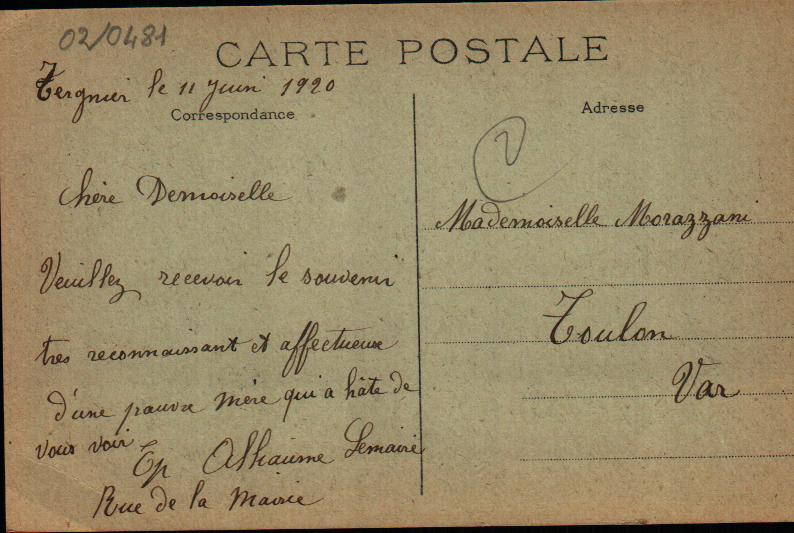 02/0481
CARTE POSTALE
Tergnier le 11 Juin 1920
Correspondance
Adresse
2
Chère Demoiselle
Mademoiselle Morazzani
Veuillez recevoir le souvenir
Toulon
très reconnaissant et affectueux
Var
d'une pauvre mère qui a hâte de
vous voir
Ep Alliaume Lemaire
Rue de la Mairie